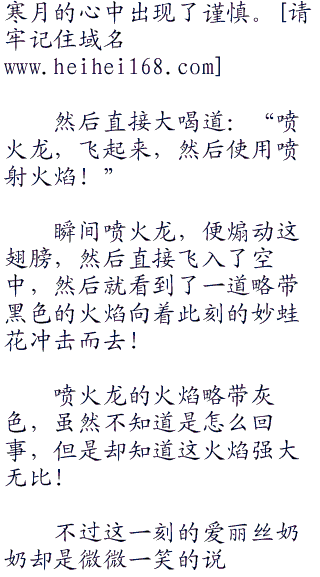 寒月的心中出现了谨慎。[请
牢记住域名
www.heihei168.com]
然后直接大喝道：“喷
火龙，飞起来，然后使用喷
射火焰！”
瞬间喷火龙，便煽动这
翅膀，然后直接飞入了空
中，然后就看到了一道略带
黑色的火焰向着此刻的妙蛙
花冲击而去！
喷火龙的火焰略带灰
色，虽然不知道是怎么回
事，但是却知道这火焰强大
无比！
不过这一刻的爱丽丝奶
奶却是微微一笑的说